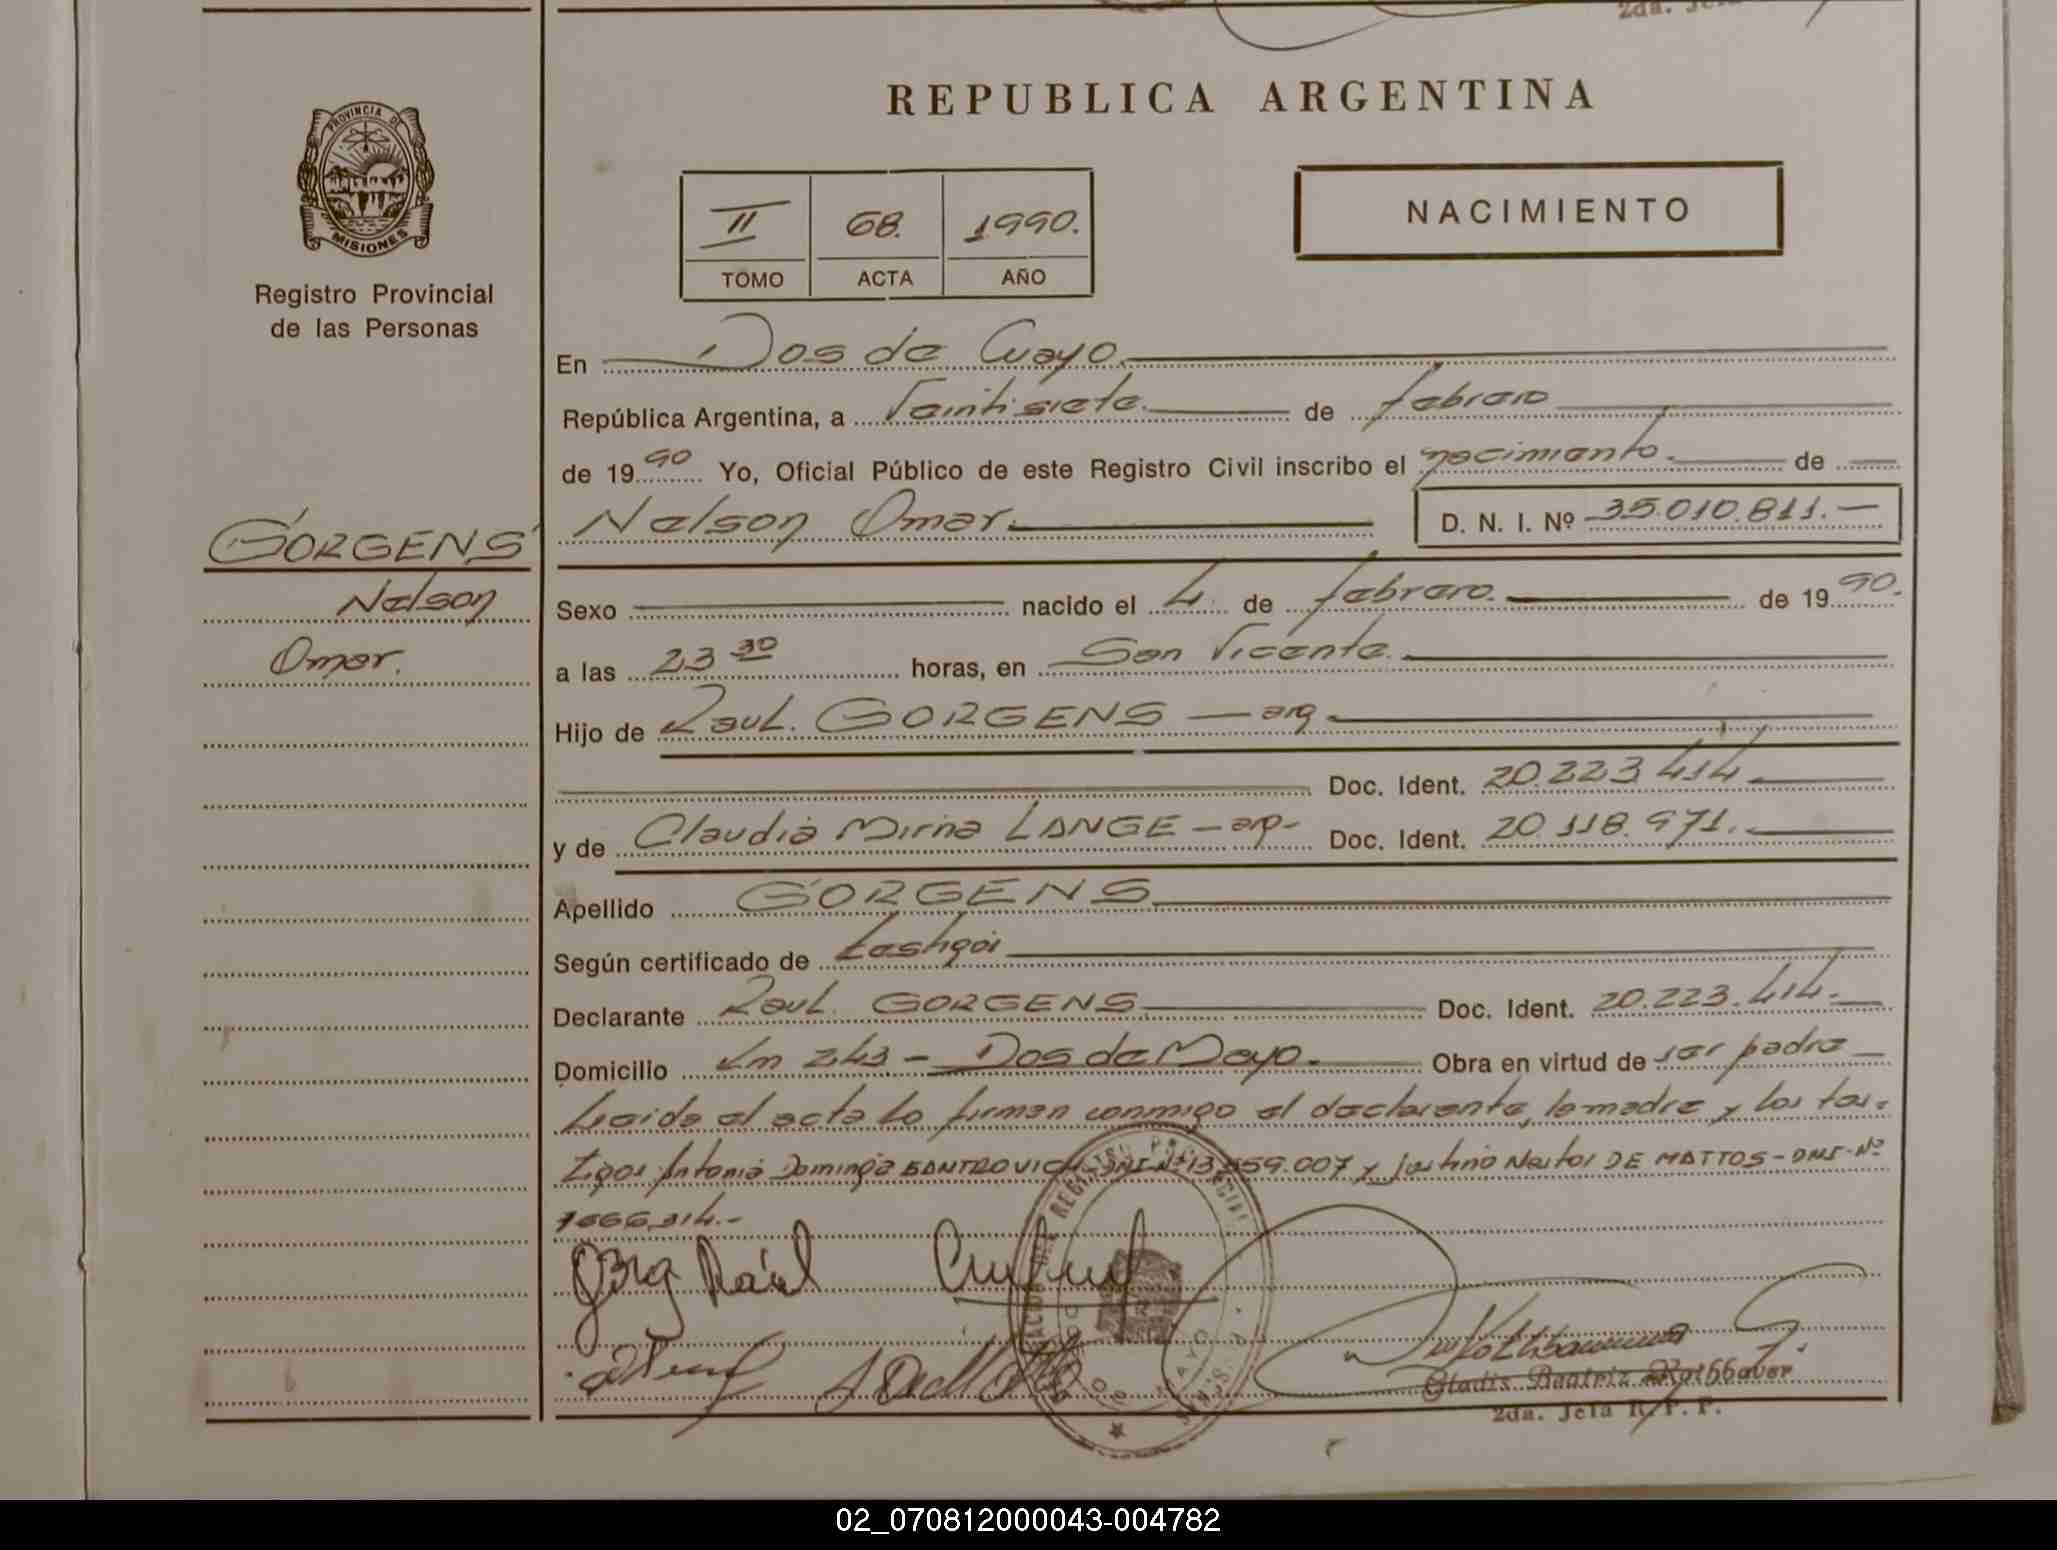 2da. Jefa
REPUBLICA ARGENTINA
PROVINCIA DE
MISIONES
Registro Provincial
de las Personas
II 68. 1990.
TOMO ACTA AÑO
NACIMIENTO
En Dos de Mayo.
República Argentina, a Veintisiete de febrero
de 1990 Yo, Oficial Público de este Registro Civil inscribo el nacimiento. de
Nelson Omar. D. N. I. Nº 35.010.811.-
GORGENS
Nelson
Omar.
Sexo nacido el 4 de febrero. de 1990.
a las 23 30 horas, en San Vicente.
Hijo de Raul. GORGENS - arg
Doc. Ident. 20.223.414.
y de Claudia Mirna LANGE - arg- Doc. Ident. 20.118.971.
Apellido GORGENS
Según certificado de testigos
Declarante Raul. GORGENS Doc. Ident. 20.223.414.
Domicilio Km 243 - Dos de Mayo. Obra en virtud de ser padre
Leida el acta lo firman conmigo el declarante, la madre y los tes-
tigos Antonia Dominga BANTROVICH-DNI-Nº 13.559.007 y Justino Nestor DE MATTOS-DNI-Nº
Raúl
Gladis Beatriz Rothbaver
2da. Jefa R. P. P.
02_070812000043-004782